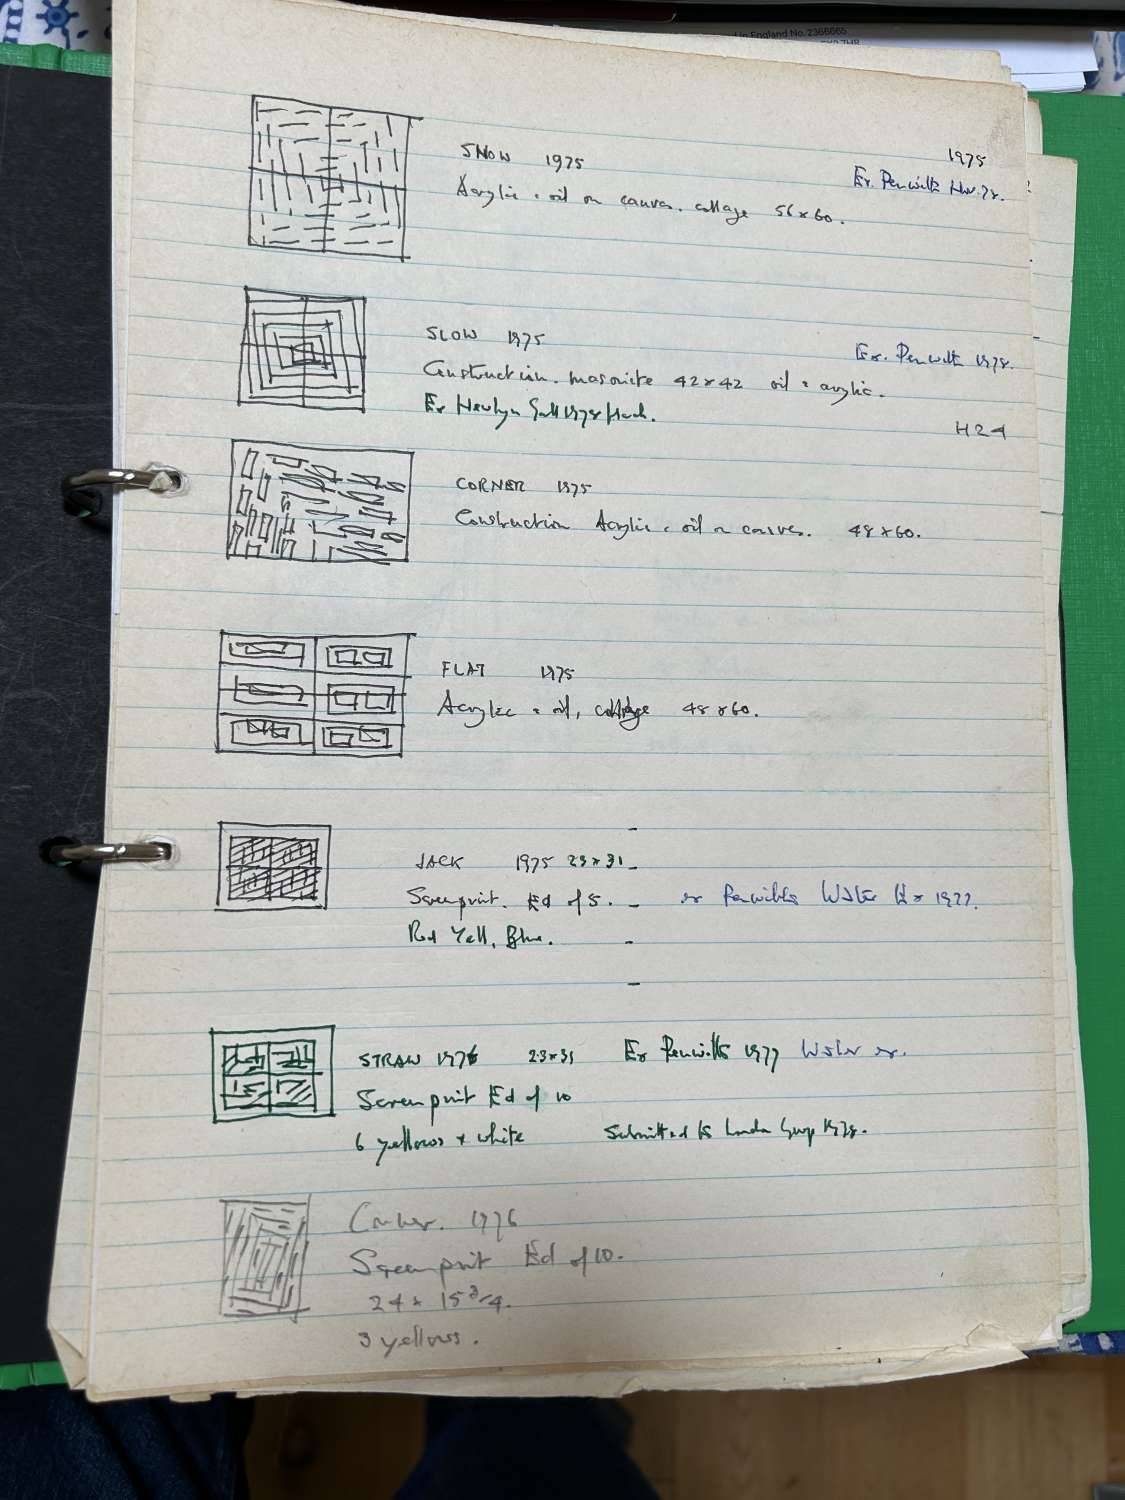 in England No. 2366665
1975
SNOW 1975
Ex. Penwith Nov. 78.
Acrylic + oil on canvas. collage 56 x 60.
SLOW 1975
Ex. Penwith 1978.
Construction. masonite 42 x 42 oil + acrylic.
Ex Newlyn Gall 1978 March.
H24
CORNER 1975
Construction Acrylic + oil on canvas. 48 x 60.
FLAT 1975
Acrylic + oil, collage 48 x 60.
JACK 1975 23 x 31
Screenprint. Ed of 5. ex Penwith Winter Ex 1977.
Red Yell, Blue.
STRAW 1976 23 x 31 Ex Penwith 1977 Winter ex.
Screenprint Ed of 10
6 yellows + white Submitted to London Group 1978.
1976
Screenprint Ed of 10.
24 x 15 3/4.
3 yellows.